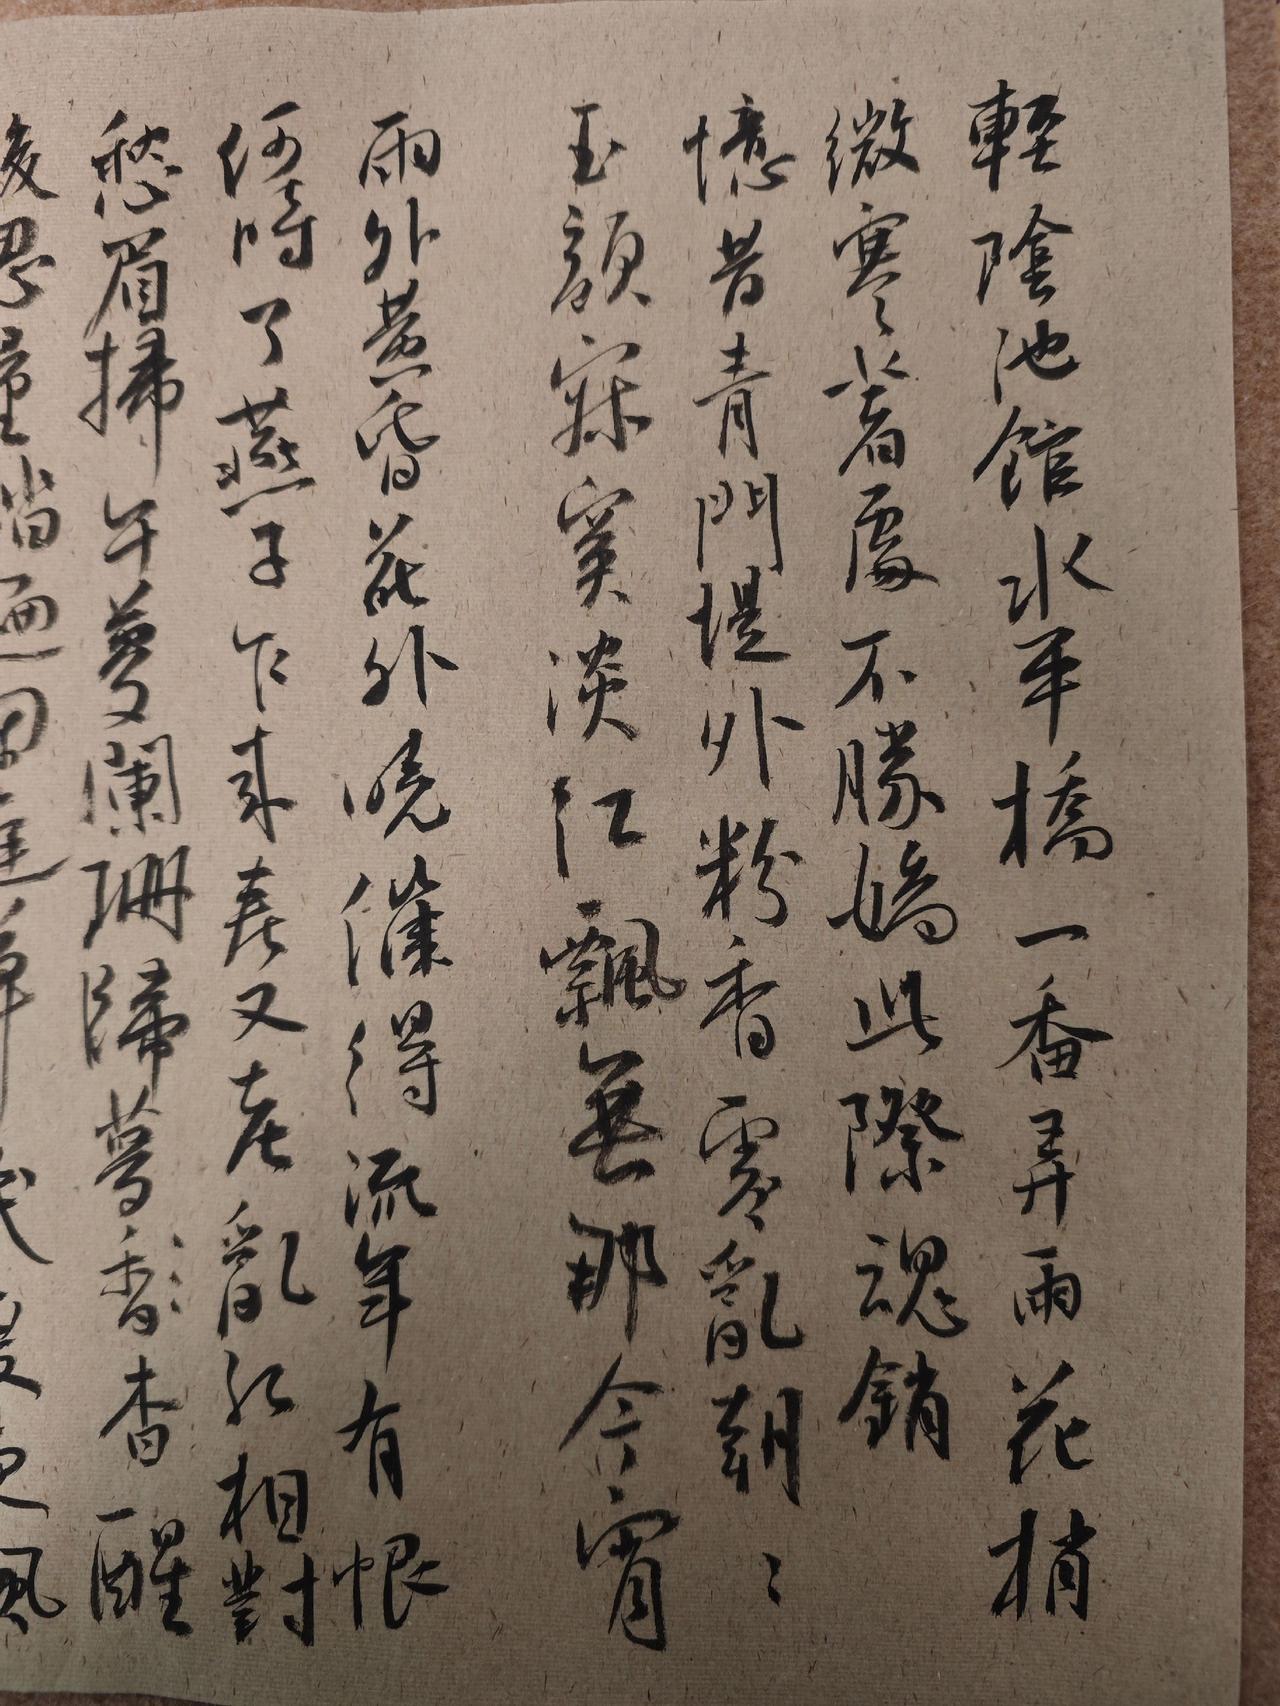 輕陰池館水平橋一番弄雨花梢
微寒著處不勝嬌此際魂銷
憶昔青門堤外粉香零亂朝〻
玉顏寂寞淡紅飄無那今宵
雨外黃昏花外曉催得流年有恨
何時了燕子乍來春又老亂紅相對
愁眉掃午夢闌珊歸夢香杳醒
後思量踏遍閒庭草幾度東風